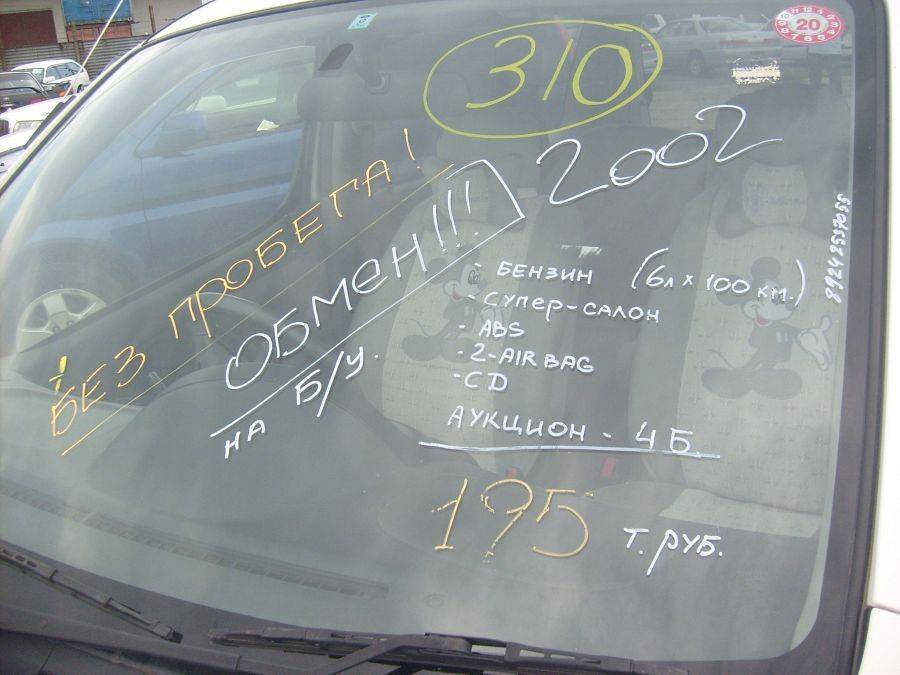 310
2002
БЕЗ ПРОБЕГА!
ОБМЕН!!!
НА Б/У.
- БЕНЗИН (6л х 100 км.)
- СУПЕР-САЛОН
- ABS
- 2-AIR BAG
- CD
АУКЦИОН - 4 Б.
195 Т. РУБ.
89242537055
20